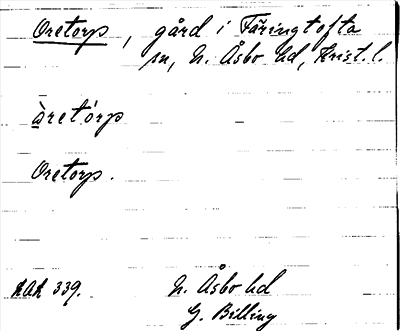 Oretorp, gård i Färingtofta
sn, N. Åsbo hd, Krist. l.
àretórp
Oretorp.
KAK 339.
N. Åsbo hd
G. Billing